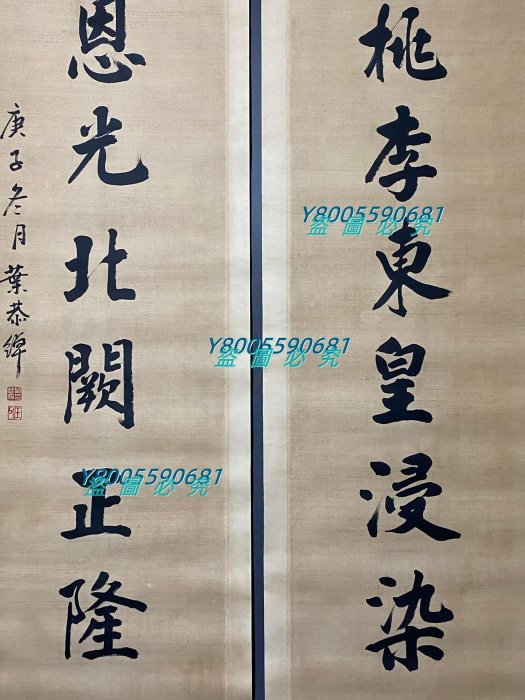 桃李東皇浸染
恩光北闕正隆
庚子冬月葉恭綽
Y8005590681
盜圖必究
Y8005590681
盜圖必究
Y8005590681
盜圖必究